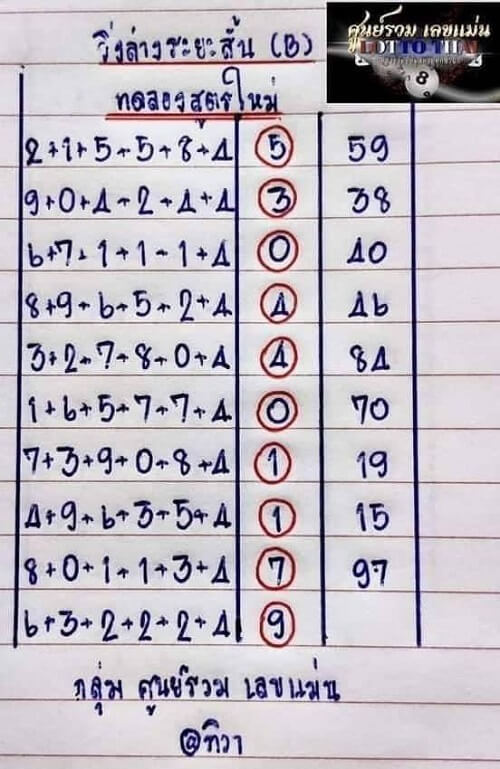 ศูนย์รวม เลขแม่น
LOTTO THAI
8
วิ่งล่างระยะสั้น (B)
ทดลองสูตรใหม่
2+1+5+5+8+4 5 59
9+0+4+2+4+4 3 38
6+7+1+1+1+4 0 40
8+9+6+5+2+4 4 46
3+2+7+8+0+4 4 84
1+6+5+7+7+4 0 70
7+3+9+0+8+4 1 19
4+9+6+3+5+4 1 15
8+0+1+1+3+4 7 97
6+3+2+2+2+4 9
กลุ่ม ศูนย์รวม เลขแม่น
@ทิวา